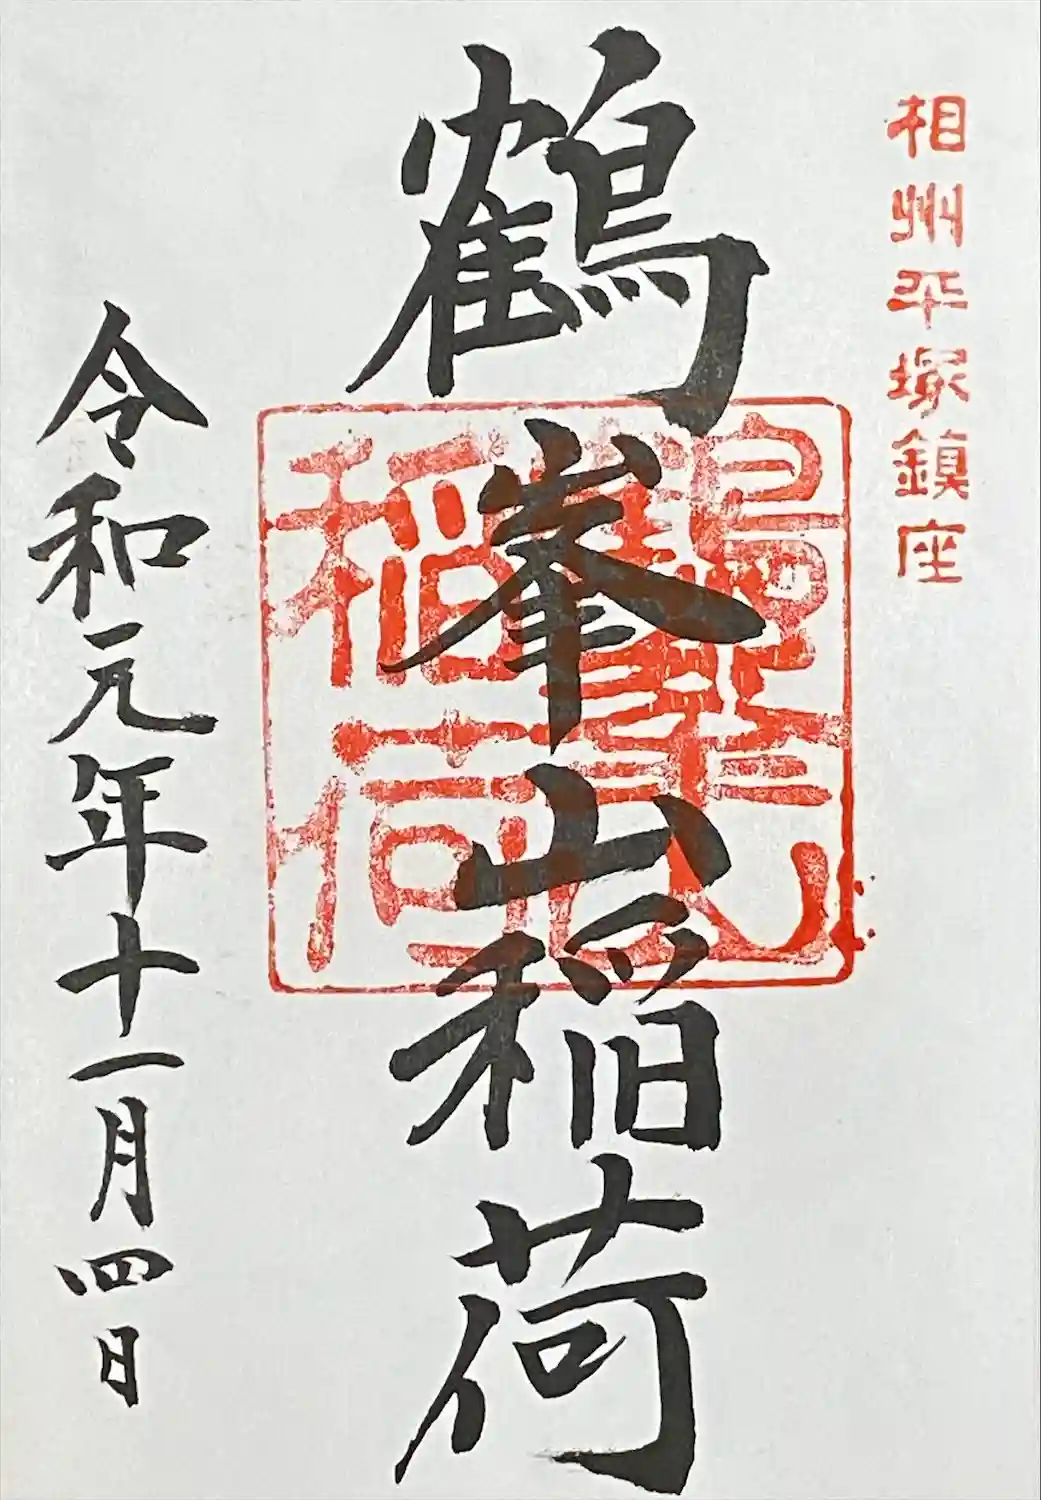 相州平塚鎮座
鶴峯山稲荷
鶴峯山稲荷
令和元年十一月四日